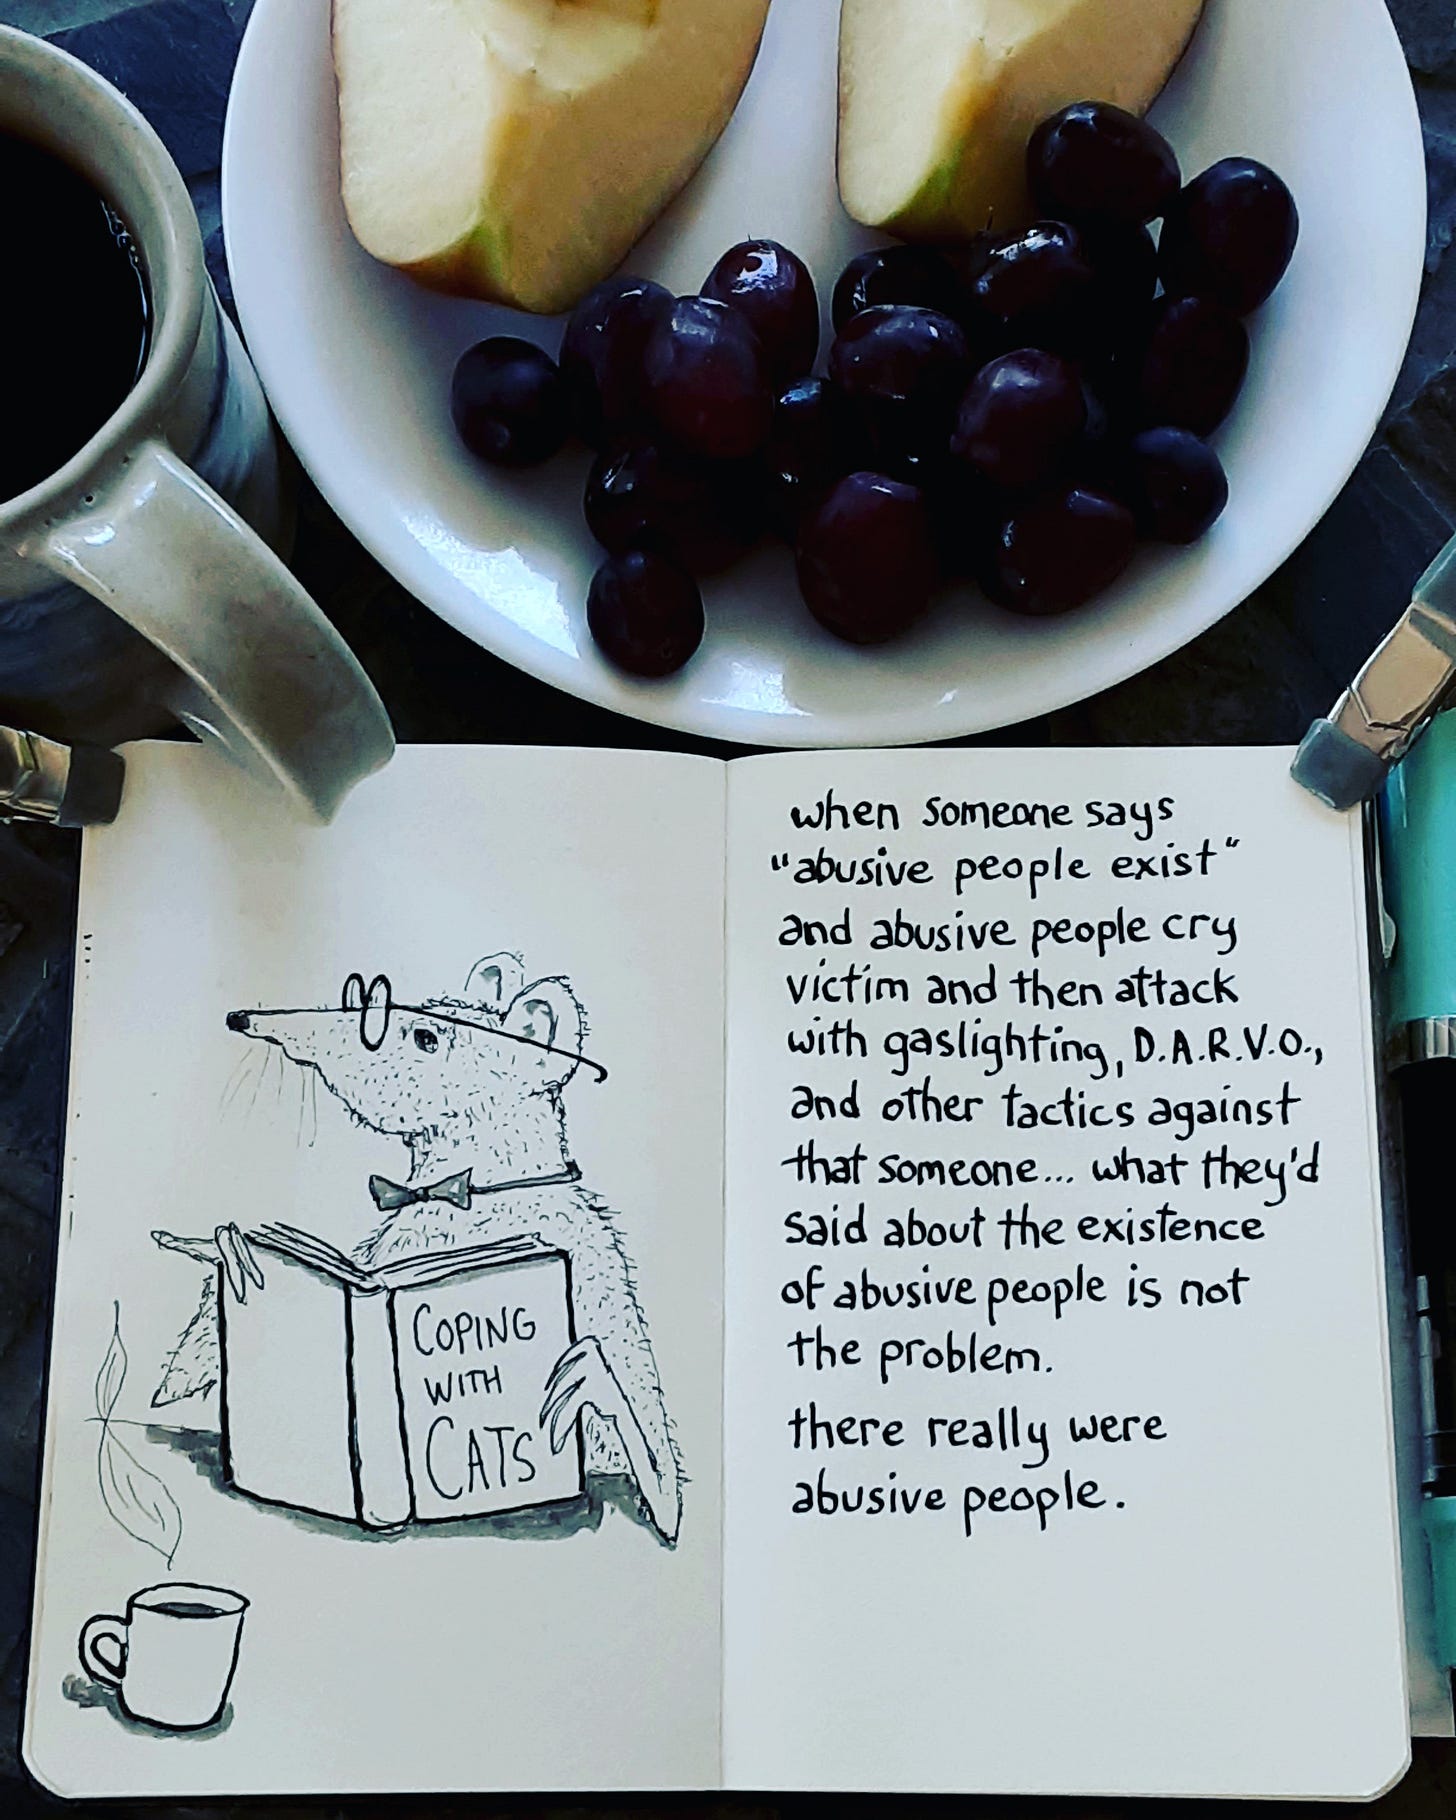 COPING
WITH
CATS
when someone says
"abusive people exist"
and abusive people cry
victim and then attack
with gaslighting, D.A.R.V.O.,
and other tactics against
that someone... what they'd
said about the existence
of abusive people is not
the problem.
there really were
abusive people.